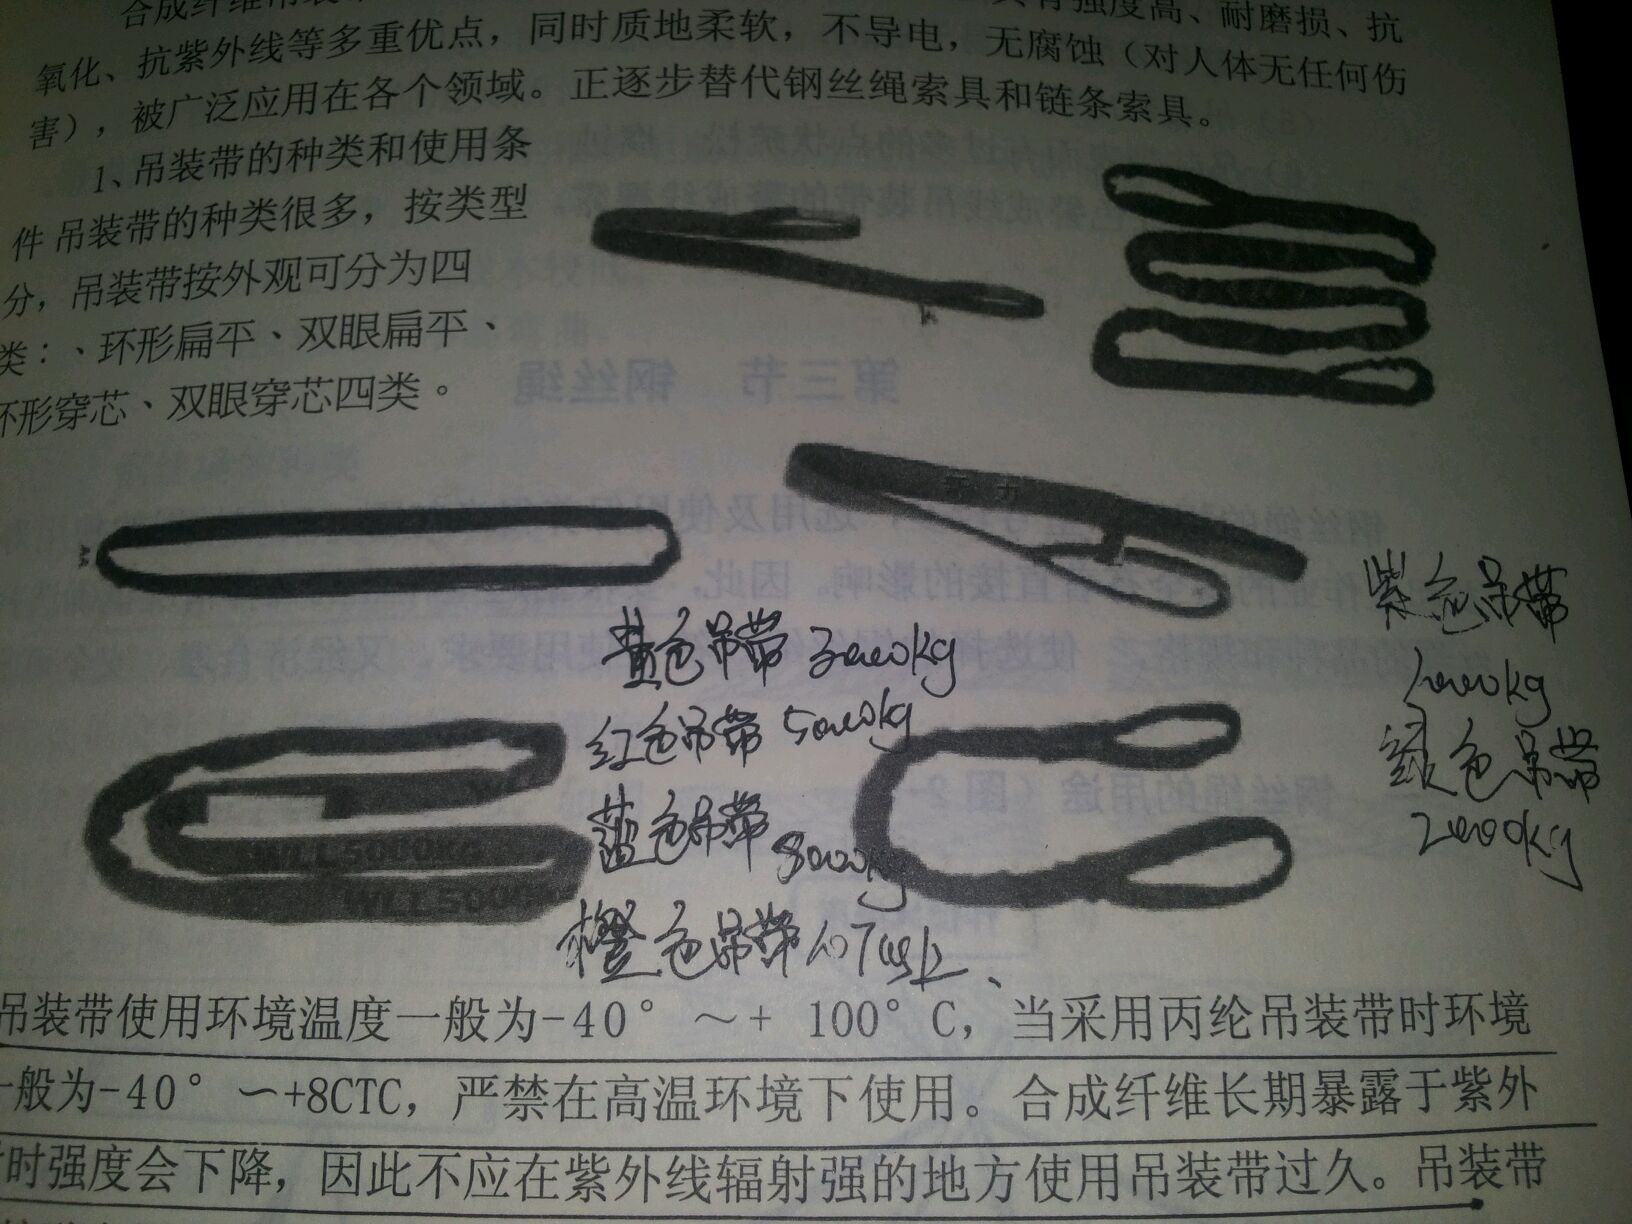 合成纤维吊装
具有强度高、耐磨损、抗
氧化、抗紫外线等多重优点，同时质地柔软，不导电，无腐蚀（对人体无任何伤
害），被广泛应用在各个领域。正逐步替代钢丝绳索具和链条索具。
1、吊装带的种类和使用条
件 吊装带的种类很多，按类型
分，吊装带按外观可分为四
类：、环形扁平、双眼扁平、
环形穿芯、双眼穿芯四类。
黄色吊带 3000kg
红色吊带 5000kg
蓝色吊带 8000kg
橙色吊带 10T以上、
紫色吊带
1000kg
绿色吊带
2000kg
WLL5000KG
WLL5000K
吊装带使用环境温度一般为-40° ～+ 100°C，当采用丙纶吊装带时环境
一般为-40° ～+8CTC，严禁在高温环境下使用。合成纤维长期暴露于紫外
时强度会下降，因此不应在紫外线辐射强的地方使用吊装带过久。吊装带